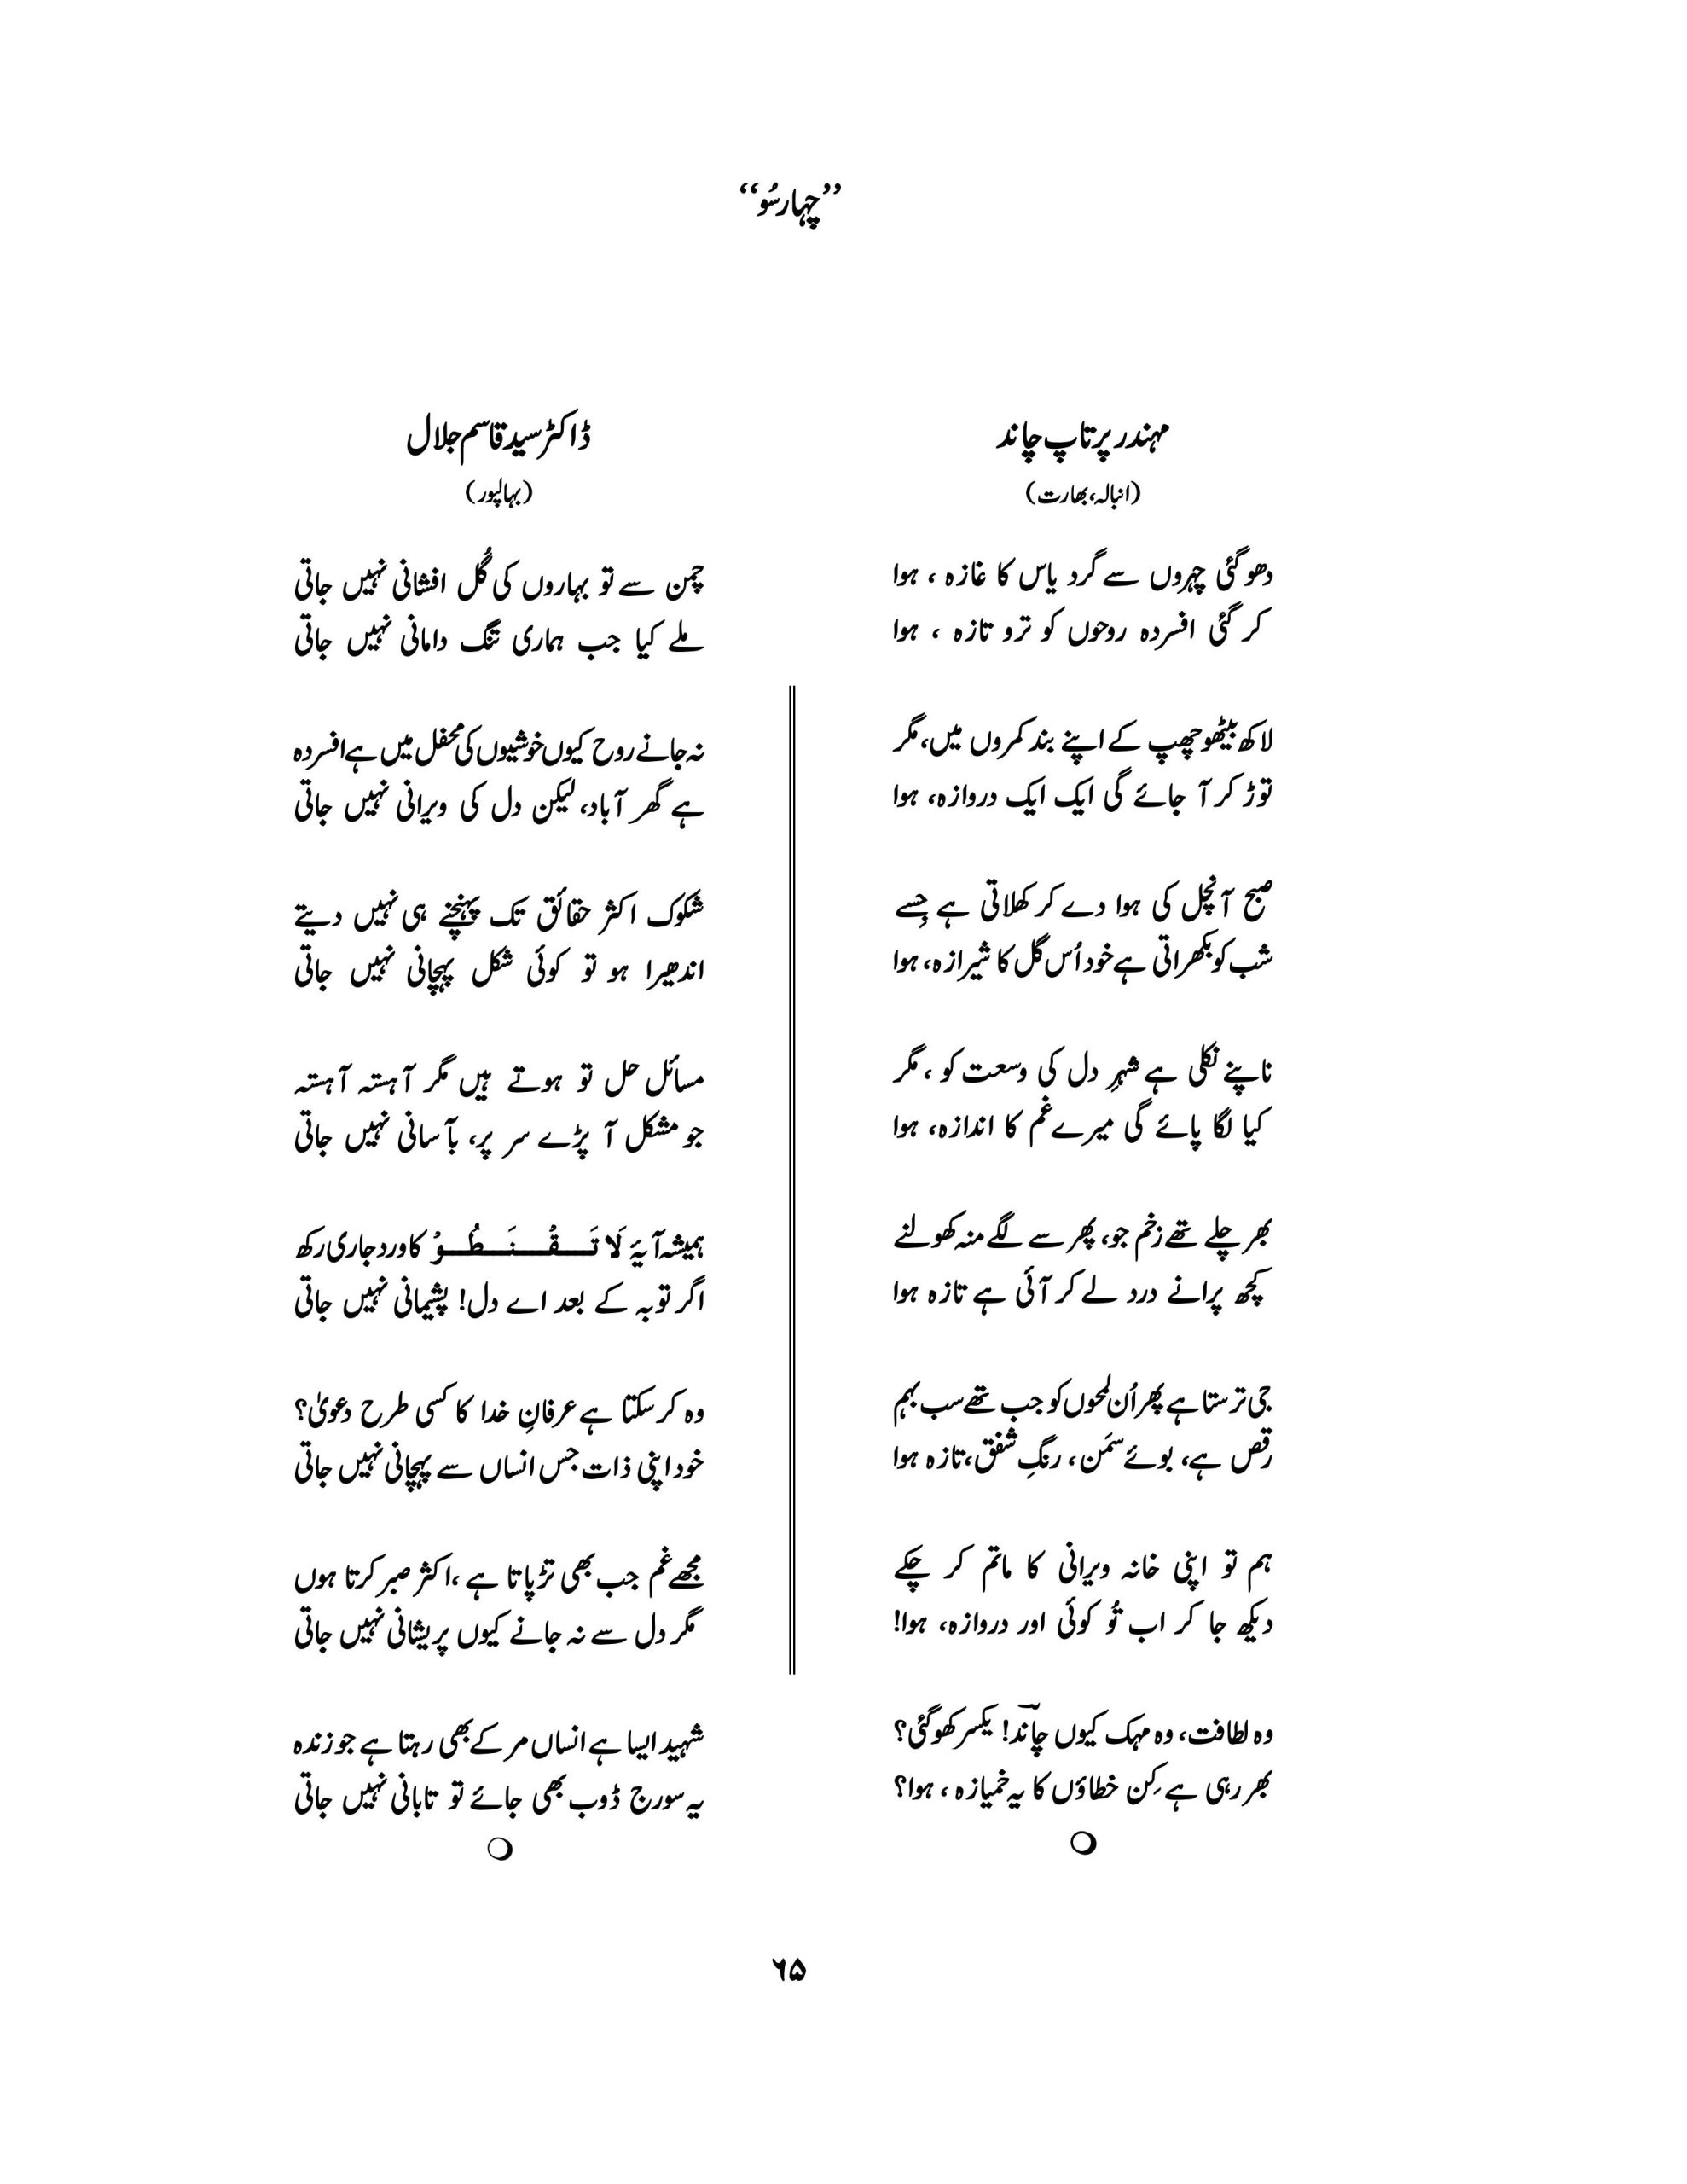 ”چہارسُو“
مہندر پرتاپ چاند
(انبالہ، بھارت)
دھو گئی چہروں سے گرد یاس کا غازہ ، ہوا
کر گئی افسردہ روحوں کو ترو تازہ ، ہوا
لاکھ بیٹھو چھپ کے اپنے بند کمروں میں، مگر
توڑ کر آ جائے گی ایک ایک دروازہ، ہوا
صبح آنچل کی ہوا دے کر کھلاتی ہے جِسے
شب کو بکھراتی ہے خود اُس گل کا شیرازہ، ہوا
ناپنے نکلی ہے شہرِ دل کی وسعت کو ، مگر
کیا لگا پائے گی میرے غم کا اندازہ، ہوا
بھر چلے تھے زخم جو، پھر سے لگے منہ کھولنے
کچھ پرانے درد لے کر آئی ہے تازہ ہوا
جی ترستا ہے پھر اُن لمحوں کو جب تھے سب بہم
رقص ہے، بوئے سمَن، رنگِ شفق، تازہ ہوا
ہم تو اپنی خانہ ویرانی کا ماتم کر چکے
دیکھ جا کر اب تُو کوئی اور دروازہ، ہوا!
وہ لطافت، وہ مہک کیوں چاند! یکسر کھو گئی؟
بھر رہی ہے کِن خطاؤں کا یہ خمیازہ ، ہوا؟
ڈاکٹر سید قاسم جلال
(بہالپور)
چمن سے تو بہاروں کی گُل افشانی نہیں جاتی
ملے کیا جب ہماری تنگ دامانی نہیں جاتی
نہ جانے روح کیوں خوشیوں کی محفل میں ہے افسردہ
ہے گھر آباد، لیکن دل کی ویرانی نہیں جاتی
شکوک اکثر حقائق تک پہنچنے ہی نہیں دیتے
اندھیرا ہو تو کوئی شکل پہچانی نہیں جاتی
مسائل حل تو ہوتے ہیں مگر آہستہ آہستہ
جو مشکل آ پڑے سر پر، بآسانی نہیں جاتی
ہمیشہ آیۂ لَا تَقْنَطُوْ کا ورد جاری رکھ
اگر توبہ کے بعد اے دل! پشیمانی نہیں جاتی
وہ کر سکتا ہے عرفانِ خدا کا کسی طرح دعویٰ؟
خود اپنی ذات جس انساں سے پہچانی نہیں جاتی
مجھے غم جب بھی تڑپاتا ہے ، اکثر صبر کرتا ہوں
مگر دل سے نہ جانے کیوں پریشانی نہیں جاتی
شہید ایسا ہے انساں مر کے بھی رہتا ہے جو زندہ
یہ سورج ڈوب بھی جائے تو تابانی نہیں جاتی
۶۵